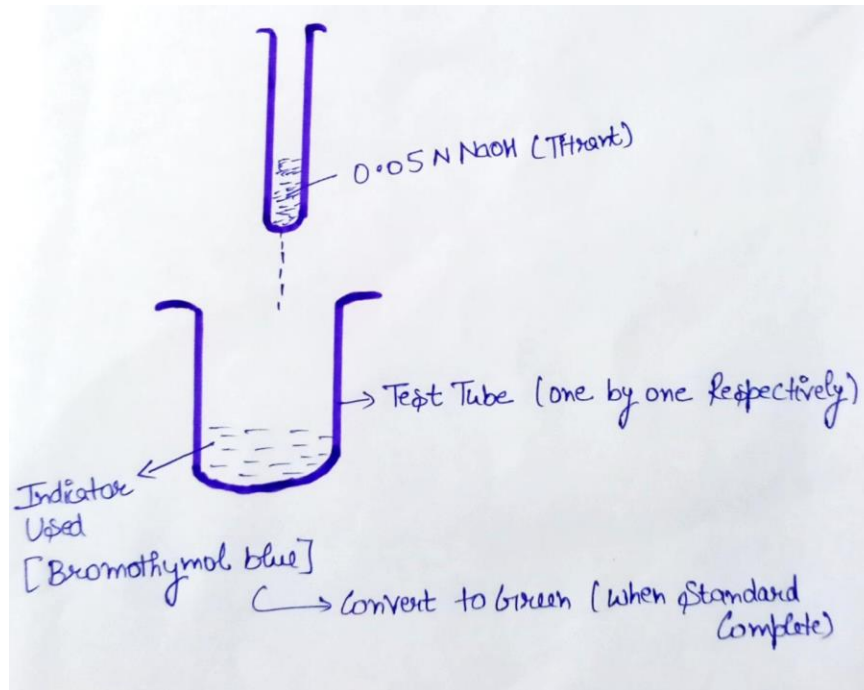 0.05 N NaOH (Titrant)
Test Tube (one by one Respectively)
Indicator
Used
[Bromothymol blue]
Convert to Green (when Standard
Complete)